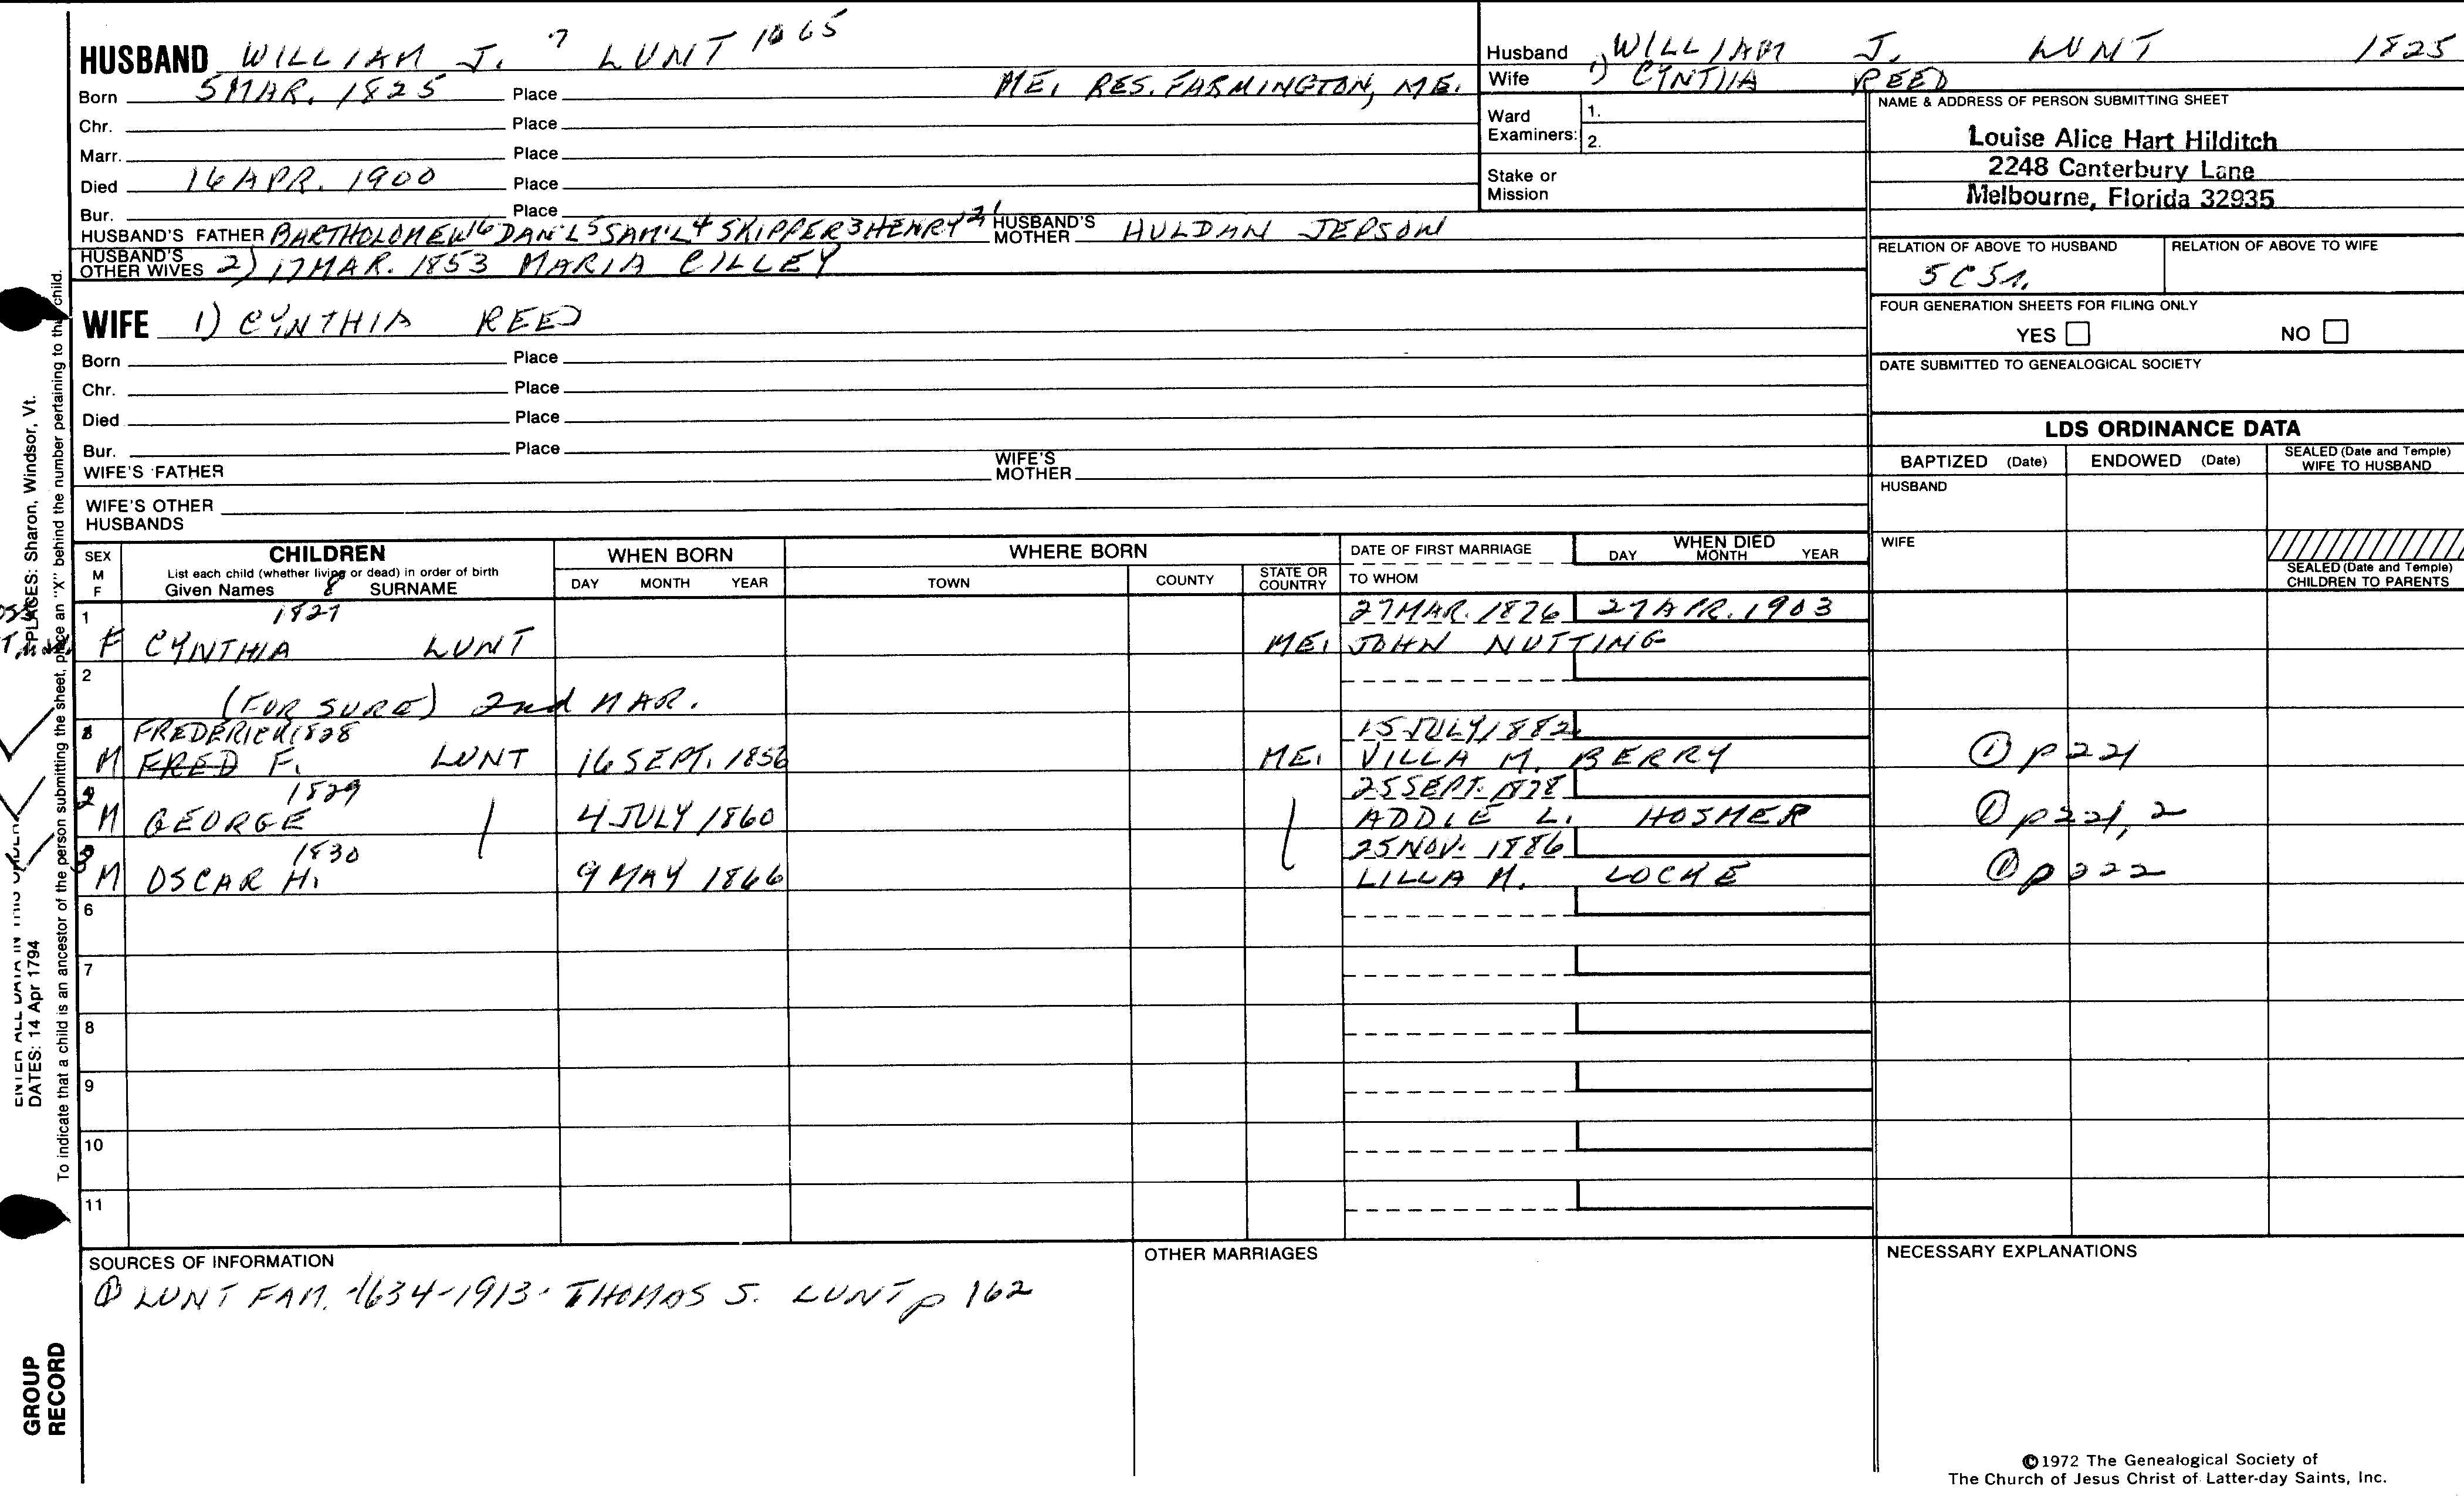 HUSBAND WILLIAM J. 7 LUNT 1065
Born 5 MAR. 1825 Place ME, RES. FARMINGTON, ME.
Chr. Place
Marr. Place
Died 16 APR. 1900 Place
Bur. Place
HUSBAND'S FATHER BARTHOLOMEW 6 DAN'L 5 SAM'L 4 SKIPPER 3 HENRY 2 1 HUSBAND'S MOTHER HULDAH JEPSON
HUSBAND'S OTHER WIVES 2) 17 MAR. 1853 MARIA CILLEY
WIFE 1) CYNTHIA REED
Born Place
Chr. Place
Died Place
Bur. Place
WIFE'S FATHER WIFE'S MOTHER
WIFE'S OTHER HUSBANDS
Husband 1) WILLIAM J. LUNT 1825
Wife 1) CYNTHIA REED
Ward Examiners: 1.
2.
Stake or Mission
NAME & ADDRESS OF PERSON SUBMITTING SHEET
Louise Alice Hart Hilditch
2248 Canterbury Lane
Melbourne, Florida 32935
RELATION OF ABOVE TO HUSBAND RELATION OF ABOVE TO WIFE
5C5r.
FOUR GENERATION SHEETS FOR FILING ONLY
YES NO
DATE SUBMITTED TO GENEALOGICAL SOCIETY
LDS ORDINANCE DATA
BAPTIZED (Date) ENDOWED (Date) SEALED (Date and Temple) WIFE TO HUSBAND
HUSBAND
WIFE
SEALED (Date and Temple) CHILDREN TO PARENTS
SEX M F CHILDREN WHEN BORN WHERE BORN DATE OF FIRST MARRIAGE WHEN DIED
List each child (whether living or dead) in order of birth
Given Names 8 SURNAME DAY MONTH YEAR TOWN COUNTY STATE OR COUNTRY TO WHOM DAY MONTH YEAR
1 1827 27 MAR. 1876 27 APR. 1903
F CYNTHIA LUNT ME, JOHN NUTTING
2
(FOR SURE) 2nd MAR.
1 FREDERICK 1828 15 JULY 1882
M FRED F. LUNT 16 SEPT. 1856 ME, VILLA M. BERRY ① p 221
2 1829 25 SEPT. 1878
M GEORGE 4 JULY 1860 ADDIE L. HOSMER ① p 221, 2
3 1830 25 NOV. 1886
M OSCAR H. 9 MAY 1866 LILLA M. LOCKE ① p 222
6
7
8
9
10
11
SOURCES OF INFORMATION OTHER MARRIAGES NECESSARY EXPLANATIONS
① LUNT FAM. 1634-1913 - THOMAS S. LUNT p 162
©1972 The Genealogical Society of
The Church of Jesus Christ of Latter-day Saints, Inc.
PLACES: Sharon, Windsor, Vt.
ENTER ALL DATA IN THIS ORDER:
DATES: 14 Apr 1794
To indicate that a child is an ancestor of the person submitting the sheet, place an "X" behind the number pertaining to that child.
GROUP
RECORD